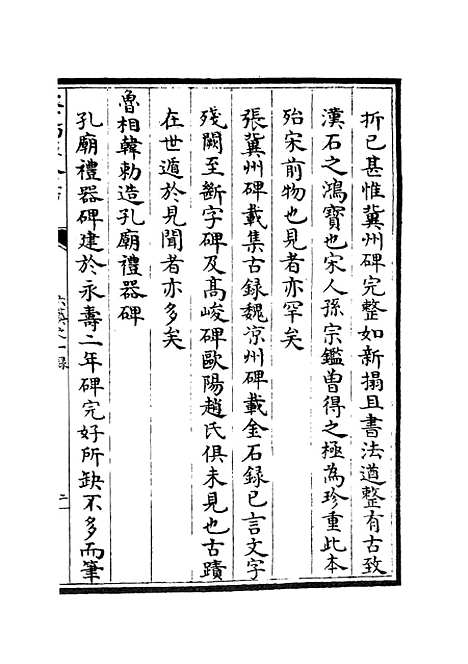 折已甚惟冀州碑完整如新搨且書法遒整有古致
漢石之鴻寶也宋人孫宗鑑曾得之極為珍重此本
殆宋前物也見者亦罕矣
張冀州碑載集古録魏凉州碑載金石録已言文字
殘闕至斷字碑及髙峻碑歐陽趙氏俱未見也古蹟
在世遁於見聞者亦多矣
魯相韓勅造孔廟禮器碑
孔廟禮器碑建於永壽二年碑完好所缺不多而筆
六藝之一録